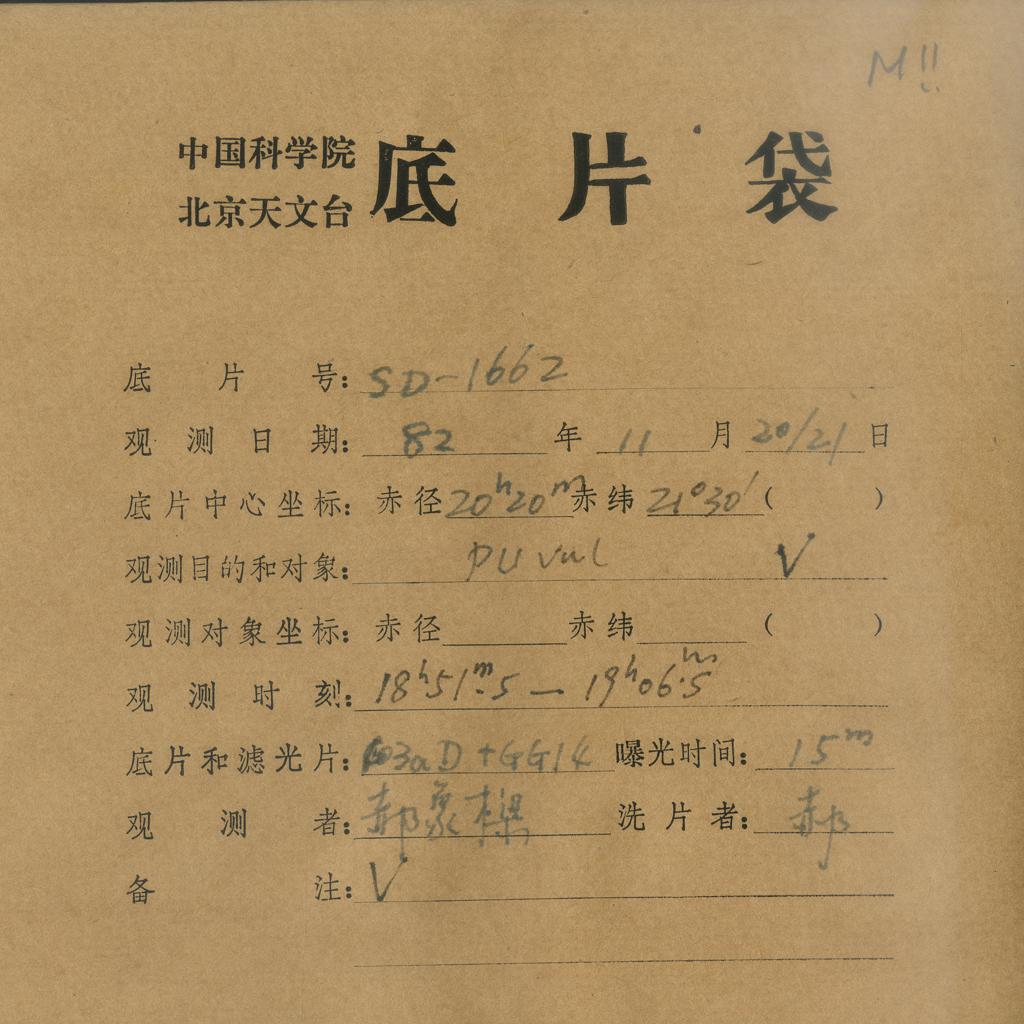 M!!
中国科学院
北京天文台 底片袋
底片号: SD-1662
观测日期: 82 年 11 月 20/21 日
底片中心坐标: 赤径 20ʰ20ᵐ 赤纬 21°30′ ( )
观测目的和对象: PU Vul V
观测对象坐标: 赤径 赤纬 ( )
观测时刻: 18ʰ51ᵐ.5 — 19ʰ06ᵐ.5
底片和滤光片: 103aD+GG14 曝光时间: 15ᵐ
观测者: 郝象樑 洗片者: 郝
备注: V